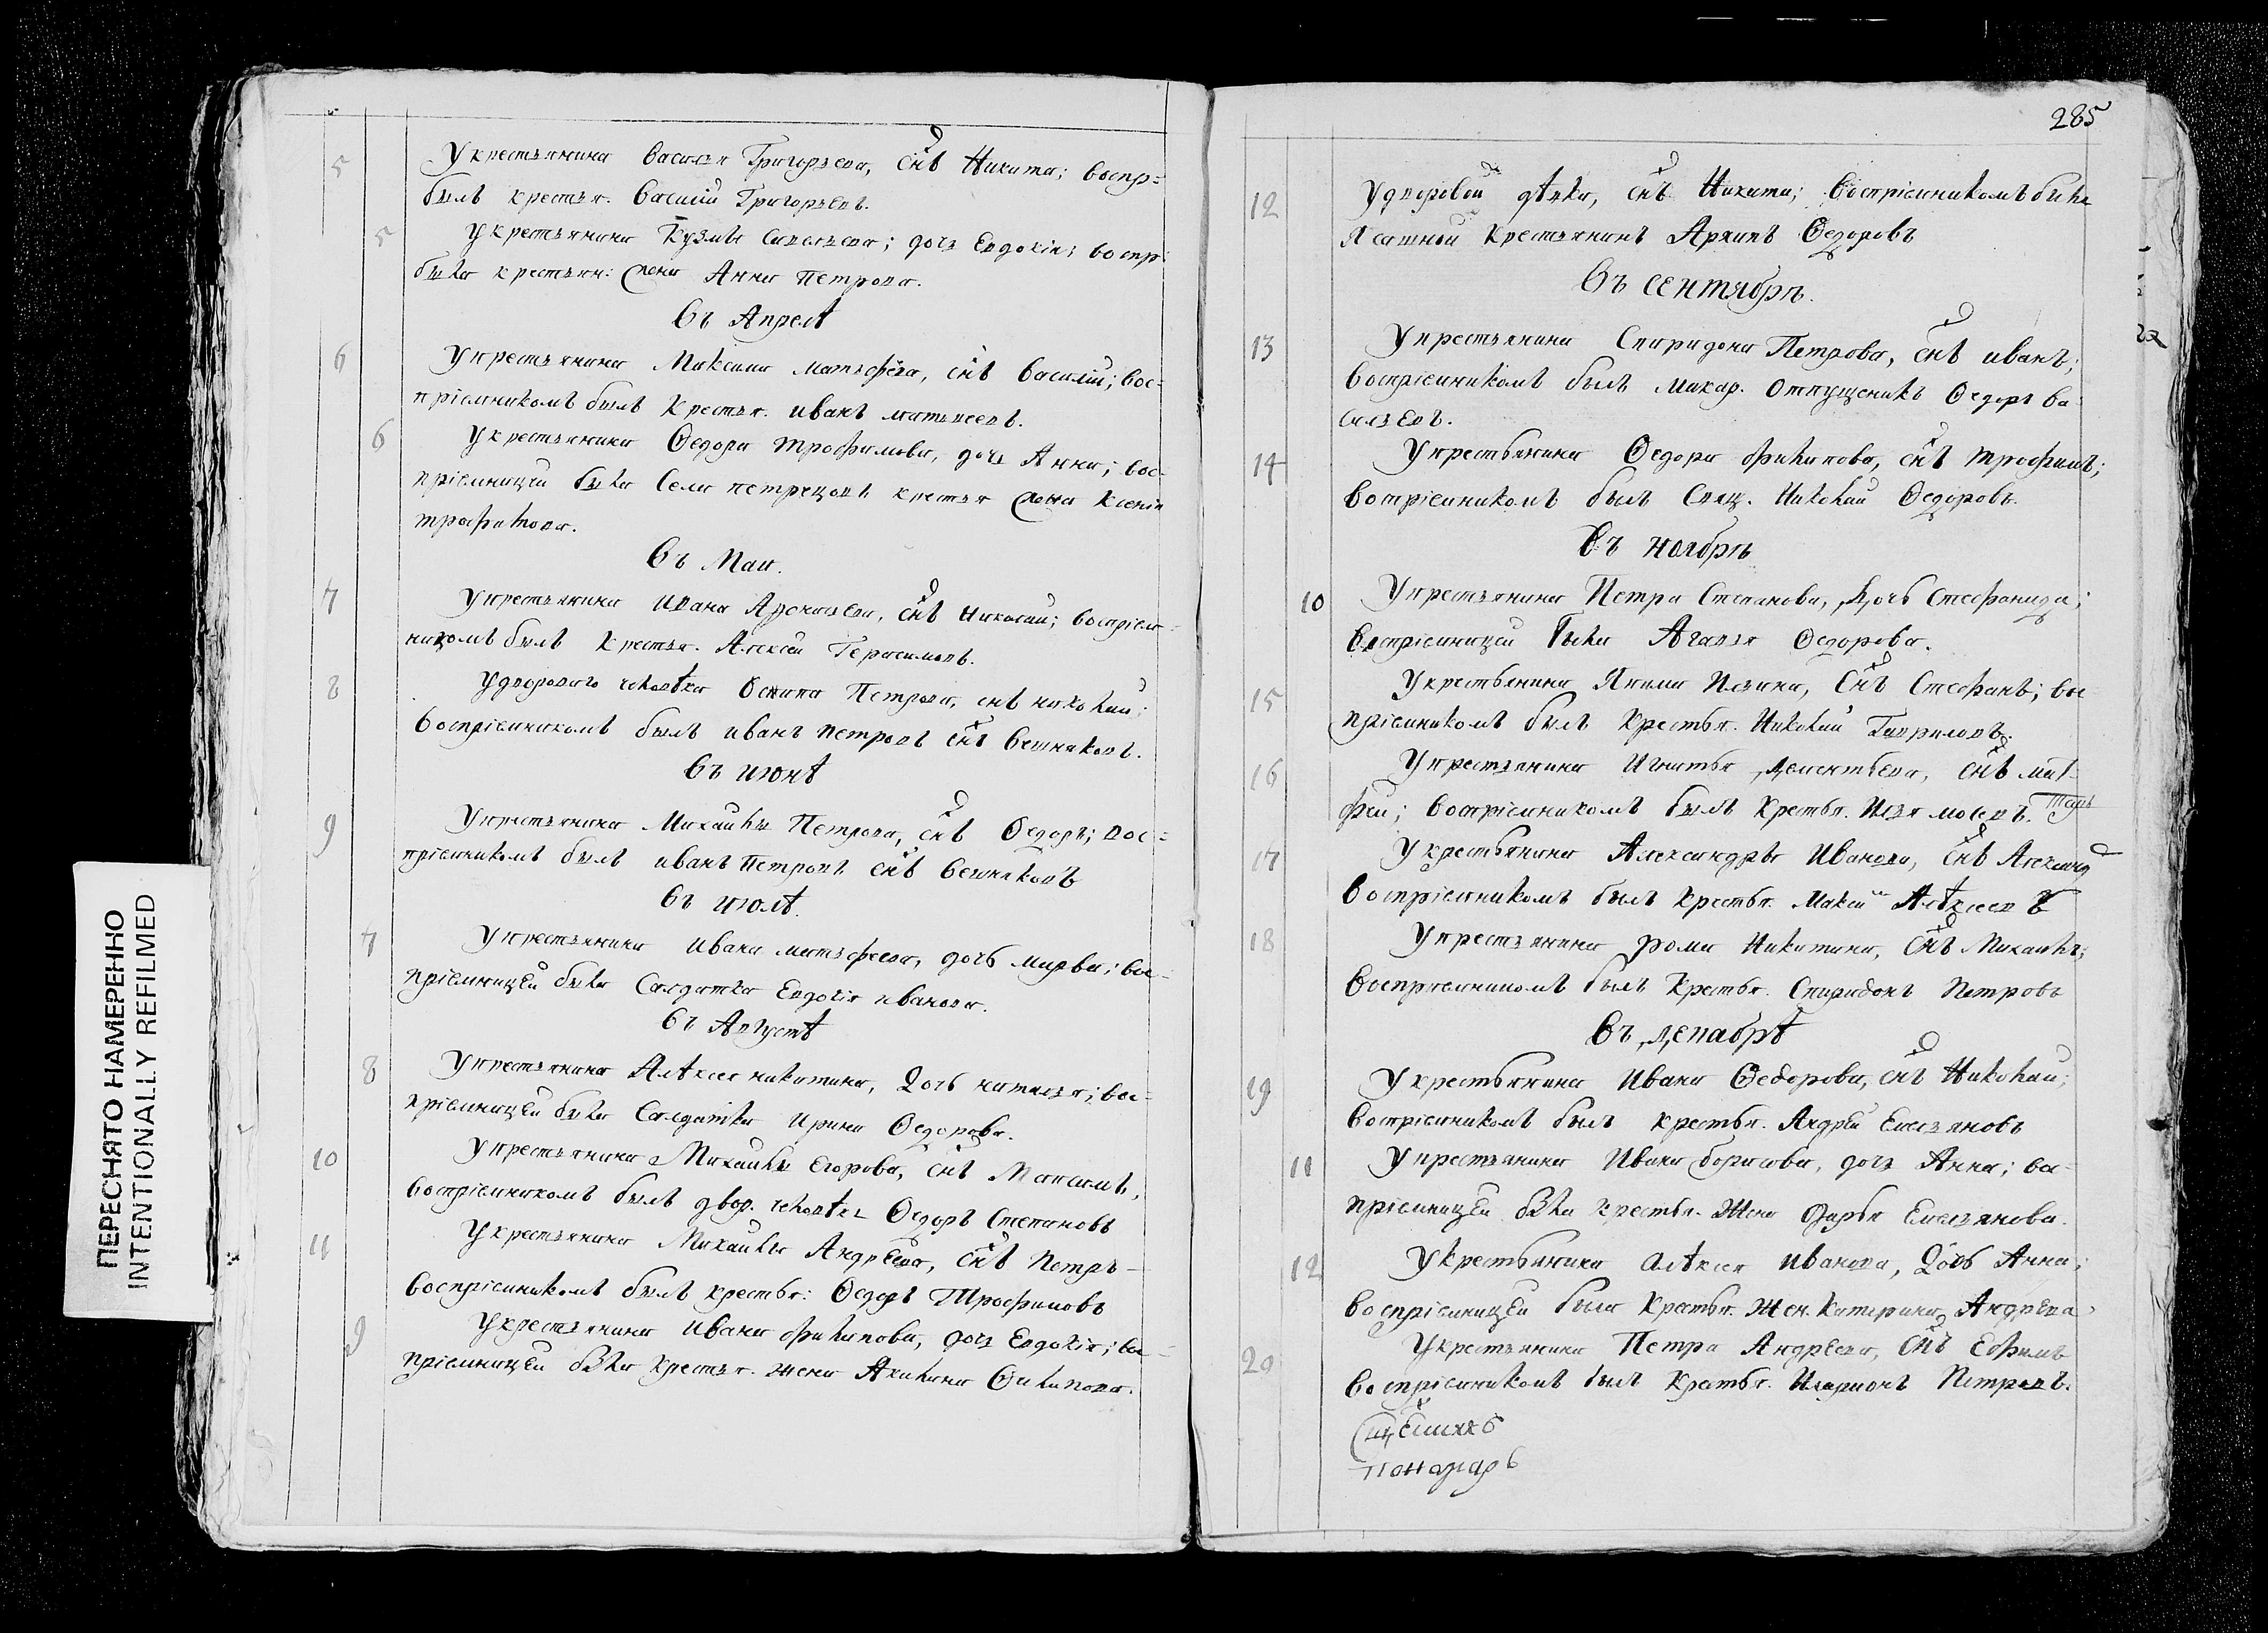 5 У крестьянина Василья Григорьева, снъ Никита; воспр=
былъ крестья. Василій Григорьевъ.
5 У крестьянина Кузмы Савельева; дочь Евдокія; воспр
была крестьян: жена Анна Петрова.
Въ Апрелѣ
6 У крестьянина Максима Матвѣфеева, снъ Василій; вос=
пріемникомъ былъ крестья. иванъ матвѣеевъ.
6 У крестьянина Ѳедора трофимова, дочь Анна; вос-
пріемницей была села крестья жена Ксенія
трофимова.
Въ Маи.
7 У крестьянина Ивана снъ Николай; воспріем=
никомъ былъ крестья. Алексей Герасимовъ.
8 У двороваго человѣка Осипа Петрова, снъ николай;
воспріемникомъ былъ иванъ петровъ снъ вешняковъ.
Въ июнѣ
9 У крестьянина Михайлы Петрова, снъ Ѳедоръ; вос=
пріемникомъ былъ иванъ Петровъ снъ вешняковъ
Въ июлѣ.
7 У крестьянина Ивана матвѣфеева, дочь марва; вос=
пріемницей была Салдатка Евдокія иванова.
Въ Августѣ
8 У крестьянина Алѣксея никитина, дочь наталья; вос=
пріемницей была Салдатка Ирина Ѳедорова.
10 У крестьянина Михайлы Егорова, снъ Максимъ,
воспріемникомъ былъ двор. человѣкъ Ѳедоръ Степановъ
11 У крестьянина Михайлы Андрѣева, снъ Петръ -
воспріемникомъ былъ крестья: Ѳедоръ Трофимовъ
9 У крестьянина Ивана филипова, дочь Евдокія; во=
пріемницей была крестья. жена Акилина Ѳилипова.
285
12 У дворовой дѣвки, снъ Никита; воспріемникомъ была
Ясашной крестьянинъ Архипъ Ѳедоровъ
Въ сентябрѣ.
13 У крестьянина Спиридона Петрова, снъ иванъ;
воспріемникомъ былъ макар. отпущеникъ Ѳедоръ ва-
сильевъ.
14 У крестьянина Ѳедора филипова, снъ трофимъ;
воспріемникомъ былъ Свящ. Николай Ѳедоровъ.
Въ ноябрѣ
10 У крестьянина Петра Степанова, дочь Стефанида;
воспріемницей была Агафья Ѳедорова.
15 У крестьянина Якима Ильина, снъ Стефанъ; вос
пріемникомъ былъ крестья. Николай Гавриловъ.
16 У крестьянина Игнатья Дементьева, снъ мат-
фей; воспріемникомъ былъ крестья. Илья мосеевъ.
17 У крестьянина Александры Иванова, снъ Александ
воспріемникомъ былъ крестья. Максим Алѣксеевъ
18 У крестьянина рома Никитина, снъ Михайлъ;
воспріемникомъ былъ крестья. Спиридонъ Петровъ
Въ декабрѣ
19 У крестьянина Ивана Ѳедорова, снъ Николай;
воспріемникомъ былъ крестья. Андрей Емельяновъ
11 У крестьянина Ивана борисова, дочь Анна; вос-
пріемницей была крестья. жена Дарья Емельянова.
12 У крестьянина Алѣксея иванова, дочь Анна;
воспріемницей была крестья. жен. катерина Андрѣева.
20 У крестьянина Петра Андрѣева, снъ Ефимъ
воспріемникомъ былъ крестья. Иларионъ Петровъ.
понамарь
ПЕРЕСНЯТО НАМЕРЕННО
INTENTIONALLY REFILMED